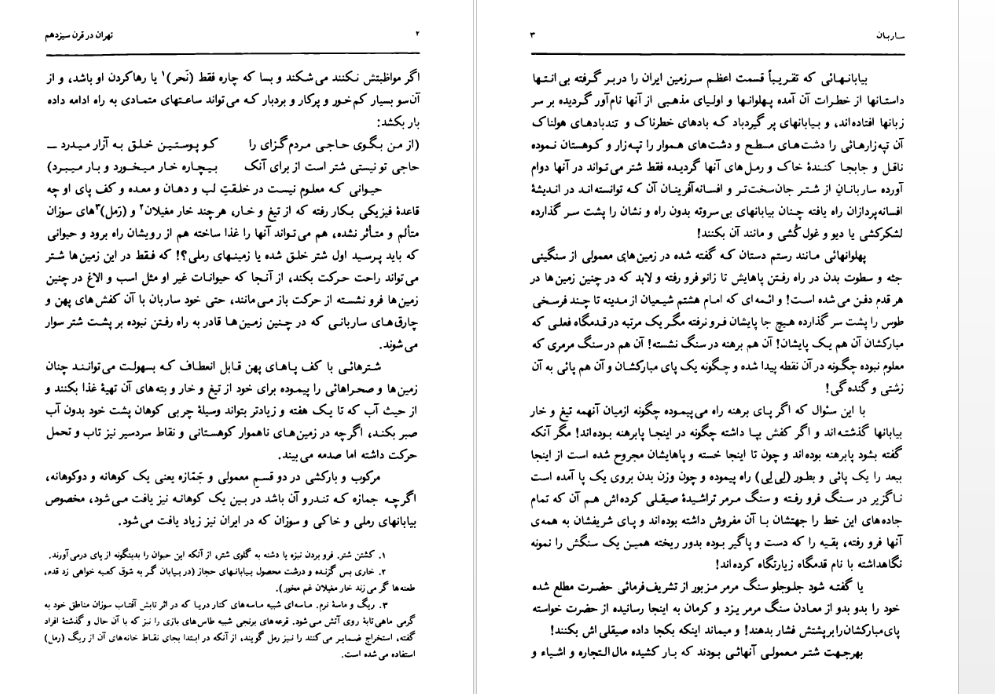 ۲
تهران در قرن سیزدهم
اگر مواظبتش نکنند می‌شکند و بسا که چاره فقط (نَحر)۱ یا رهاکردن او باشد، و از
آن‌سو بسیار کم‌خور و پرکار و بردبار که می‌تواند ساعتهای متمادی به راه ادامه داده
بار بکشد:
(از من بگوی حاجی مردم‌گزای را کو پوستین خلق به آزار میدرد ــ
حاجی تو نیستی شتر است از برای آنک بیچاره خار میخورد و بار میبرد)
حیوانی که معلوم نیست در خلقتِ لب و دهان و معده و کف پای او چه
قاعدهٔ فیزیکی بکار رفته که از تیغ و خار، هرچند خار مغیلان۲ و (رَمل)۳های سوزان
متألم و متأثر نشده، هم می‌تواند آنها را غذا ساخته هم از رویشان راه برود و حیوانی
که باید پرسید اول شتر خلق شده یا زمینهای رملی؟! که فقط در این زمین‌ها شتر
می‌تواند راحت حرکت بکند، از آنجا که حیوانات غیر او مثل اسب و الاغ در چنین
زمین‌ها فرو نشسته از حرکت باز می‌مانند، حتی خود ساربان با آن کفش‌های پهن و
چارق‌های ساربانی که در چنین زمین‌ها قادر به راه رفتن نبوده بر پشت شتر سوار
می‌شوند.
شترهائی با کف پاهای پهن قابل انعطاف که بسهولت می‌توانند چنان
زمین‌ها و صحراهائی را پیموده برای خود از تیغ و خار و بته‌های آن تهیهٔ غذا بکنند و
از حیث آب که تا یک هفته و زیادتر بتواند وسیلهٔ چربی کوهان پشت خود بدون آب
صبر بکند، اگرچه در زمین‌های ناهموار کوهستانی و نقاط سردسیر نیز تاب و تحمل
حرکت داشته اما صدمه می‌بیند.
مرکوب و بارکشی در دو قسم معمولی و جَمّازه یعنی یک کوهانه و دوکوهانه،
اگرچه جمازه که تندرو آن باشد در بین یک کوهانه نیز یافت می‌شود، مخصوص
بیابانهای رملی و خاکی و سوزان که در ایران نیز زیاد یافت می‌شود.
۱. کشتن شتر. فرو بردن نیزه یا دشنه به گلوی شتر، از آنکه این حیوان را بدینگونه از پای درمی‌آورند.
۲. خاری بس گزنده و درشت محصول بیابانهای حجاز (در بیابان گر به شوق کعبه خواهی زد قدم،
طعنه‌ها گر می‌زند خار مغیلان غم مخور).
۳. ریگ و ماسهٔ نرم. ماسه‌ای شبیه ماسه‌های کنار دریا که در اثر تابش آفتاب سوزان مناطق خود به
گرمی ماهی‌تابهٔ روی آتش می‌شود. قرعه‌های برنجی شبیه طاس‌های بازی را نیز که با آن حال و گذشتهٔ افراد
گفته، استخراج ضمایر می‌کنند را نیز رمل گویند، از آنکه در ابتدا بجای نقاط خانه‌های آن از ریگ (رمل)
استفاده می‌شده است.
ساربان
۳
بیابانهائی که تقریباً قسمت اعظم سرزمین ایران را دربر گرفته بی‌انتها
داستانها از خطرات آن آمده پهلوانها و اولیای مذهبی از آنها نام‌آور گردیده بر سر
زبانها افتاده‌اند، و بیابانهای پر گیردباد که بادهای خطرناک و تندبادهای هولناک
آن تپه‌زارهائی را دشت‌های مسطح و دشت‌های هموار را تپه‌زار و کوهستان نموده
ناقل و جابجا کنندهٔ خاک و رمل‌های آنها گردیده فقط شتر می‌تواند در آنها دوام
آورده ساربانانِ از شتر جان‌سخت‌تر و افسانه‌آفرینان آن که توانسته‌اند در اندیشهٔ
افسانه‌پردازان راه یافته چنان بیابانهای بی‌سروته بدون راه و نشان را پشت سر گذارده
لشکرکشی یا دیو و غول کُشی و مانند آن بکنند!
پهلوانهائی مانند رستم دستان که گفته شده در زمین‌های معمولی از سنگینی
جثه و سطوت بدن در راه رفتن پاهایش تا زانو فرو رفته و لابد که در چنین زمین‌ها در
هر قدم دفن می‌شده است! و ائمه‌ای که امام هشتم شیعیان از مدینه تا چند فرسخی
طوس را پشت سر گذارده هیچ جا پایشان فرو نرفته مگر یک مرتبه در قدمگاه فعلی که
مبارکشان آن هم یک پایشان! آن هم برهنه در سنگ نشسته! آن هم در سنگ مرمری که
معلوم نبوده چگونه در آن نقطه پیدا شده و چگونه یک پای مبارکشان و آن هم پائی به آن
زشتی و گنده‌گی!
با این سئوال که اگر پای برهنه راه می‌پیموده چگونه ازمیان آنهمه تیغ و خار
بیابانها گذشته‌اند و اگر کفش بپا داشته چگونه در اینجا پابرهنه بوده‌اند! مگر آنکه
گفته بشود پابرهنه بوده‌اند و چون تا اینجا خسته و پاهایشان مجروح شده است از اینجا
ببعد را یک پائی و بطور (لی‌لی) راه پیموده و چون وزن بدن بروی یک پا آمده است
ناگزیر در سنگ فرو رفته و سنگ مرمر تراشیدهٔ صیقلی کرده‌اش هم آن که تمام
جاده‌های این خط را جهتشان با آن مفروش داشته بوده‌اند و پای شریفشان به همه‌ی
آنها فرو رفته، بقیه را که دست و پاگیر بوده بدور ریخته همین یک سنگش را نمونه
نگاهداشته با نام قدمگاه زیارتگاه کرده‌اند!
یا گفته شود جلوجلو سنگ مرمر مزبور از تشریف‌فرمائی حضرت مطلع شده
خود را بدو بدو از معادن سنگ مرمر یزد و کرمان به اینجا رسانیده از حضرت خواسته
پای مبارکشان را برپشتش فشار بدهند! و میماند اینکه بکجا داده صیقلی‌اش بکنند!
بهرجهت شتر معمولی آنهائی بودند که بار کشیده مال‌التجاره و اشیاء و